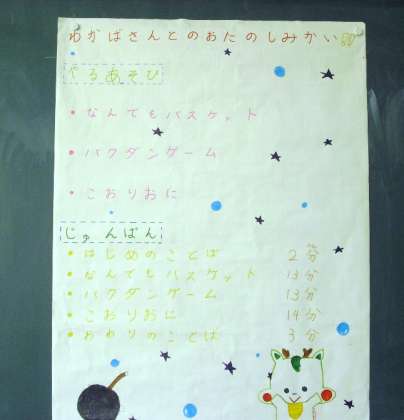 わかばさんとのおたのしみかい
やるあそび
• なんでもバスケット
• バクダンゲーム
• こおりおに
じゅんばん
• はじめのことば 2分
• なんでもバスケット 13分
• バクダンゲーム 13分
• こおりおに 14分
• おわりのことば 3分